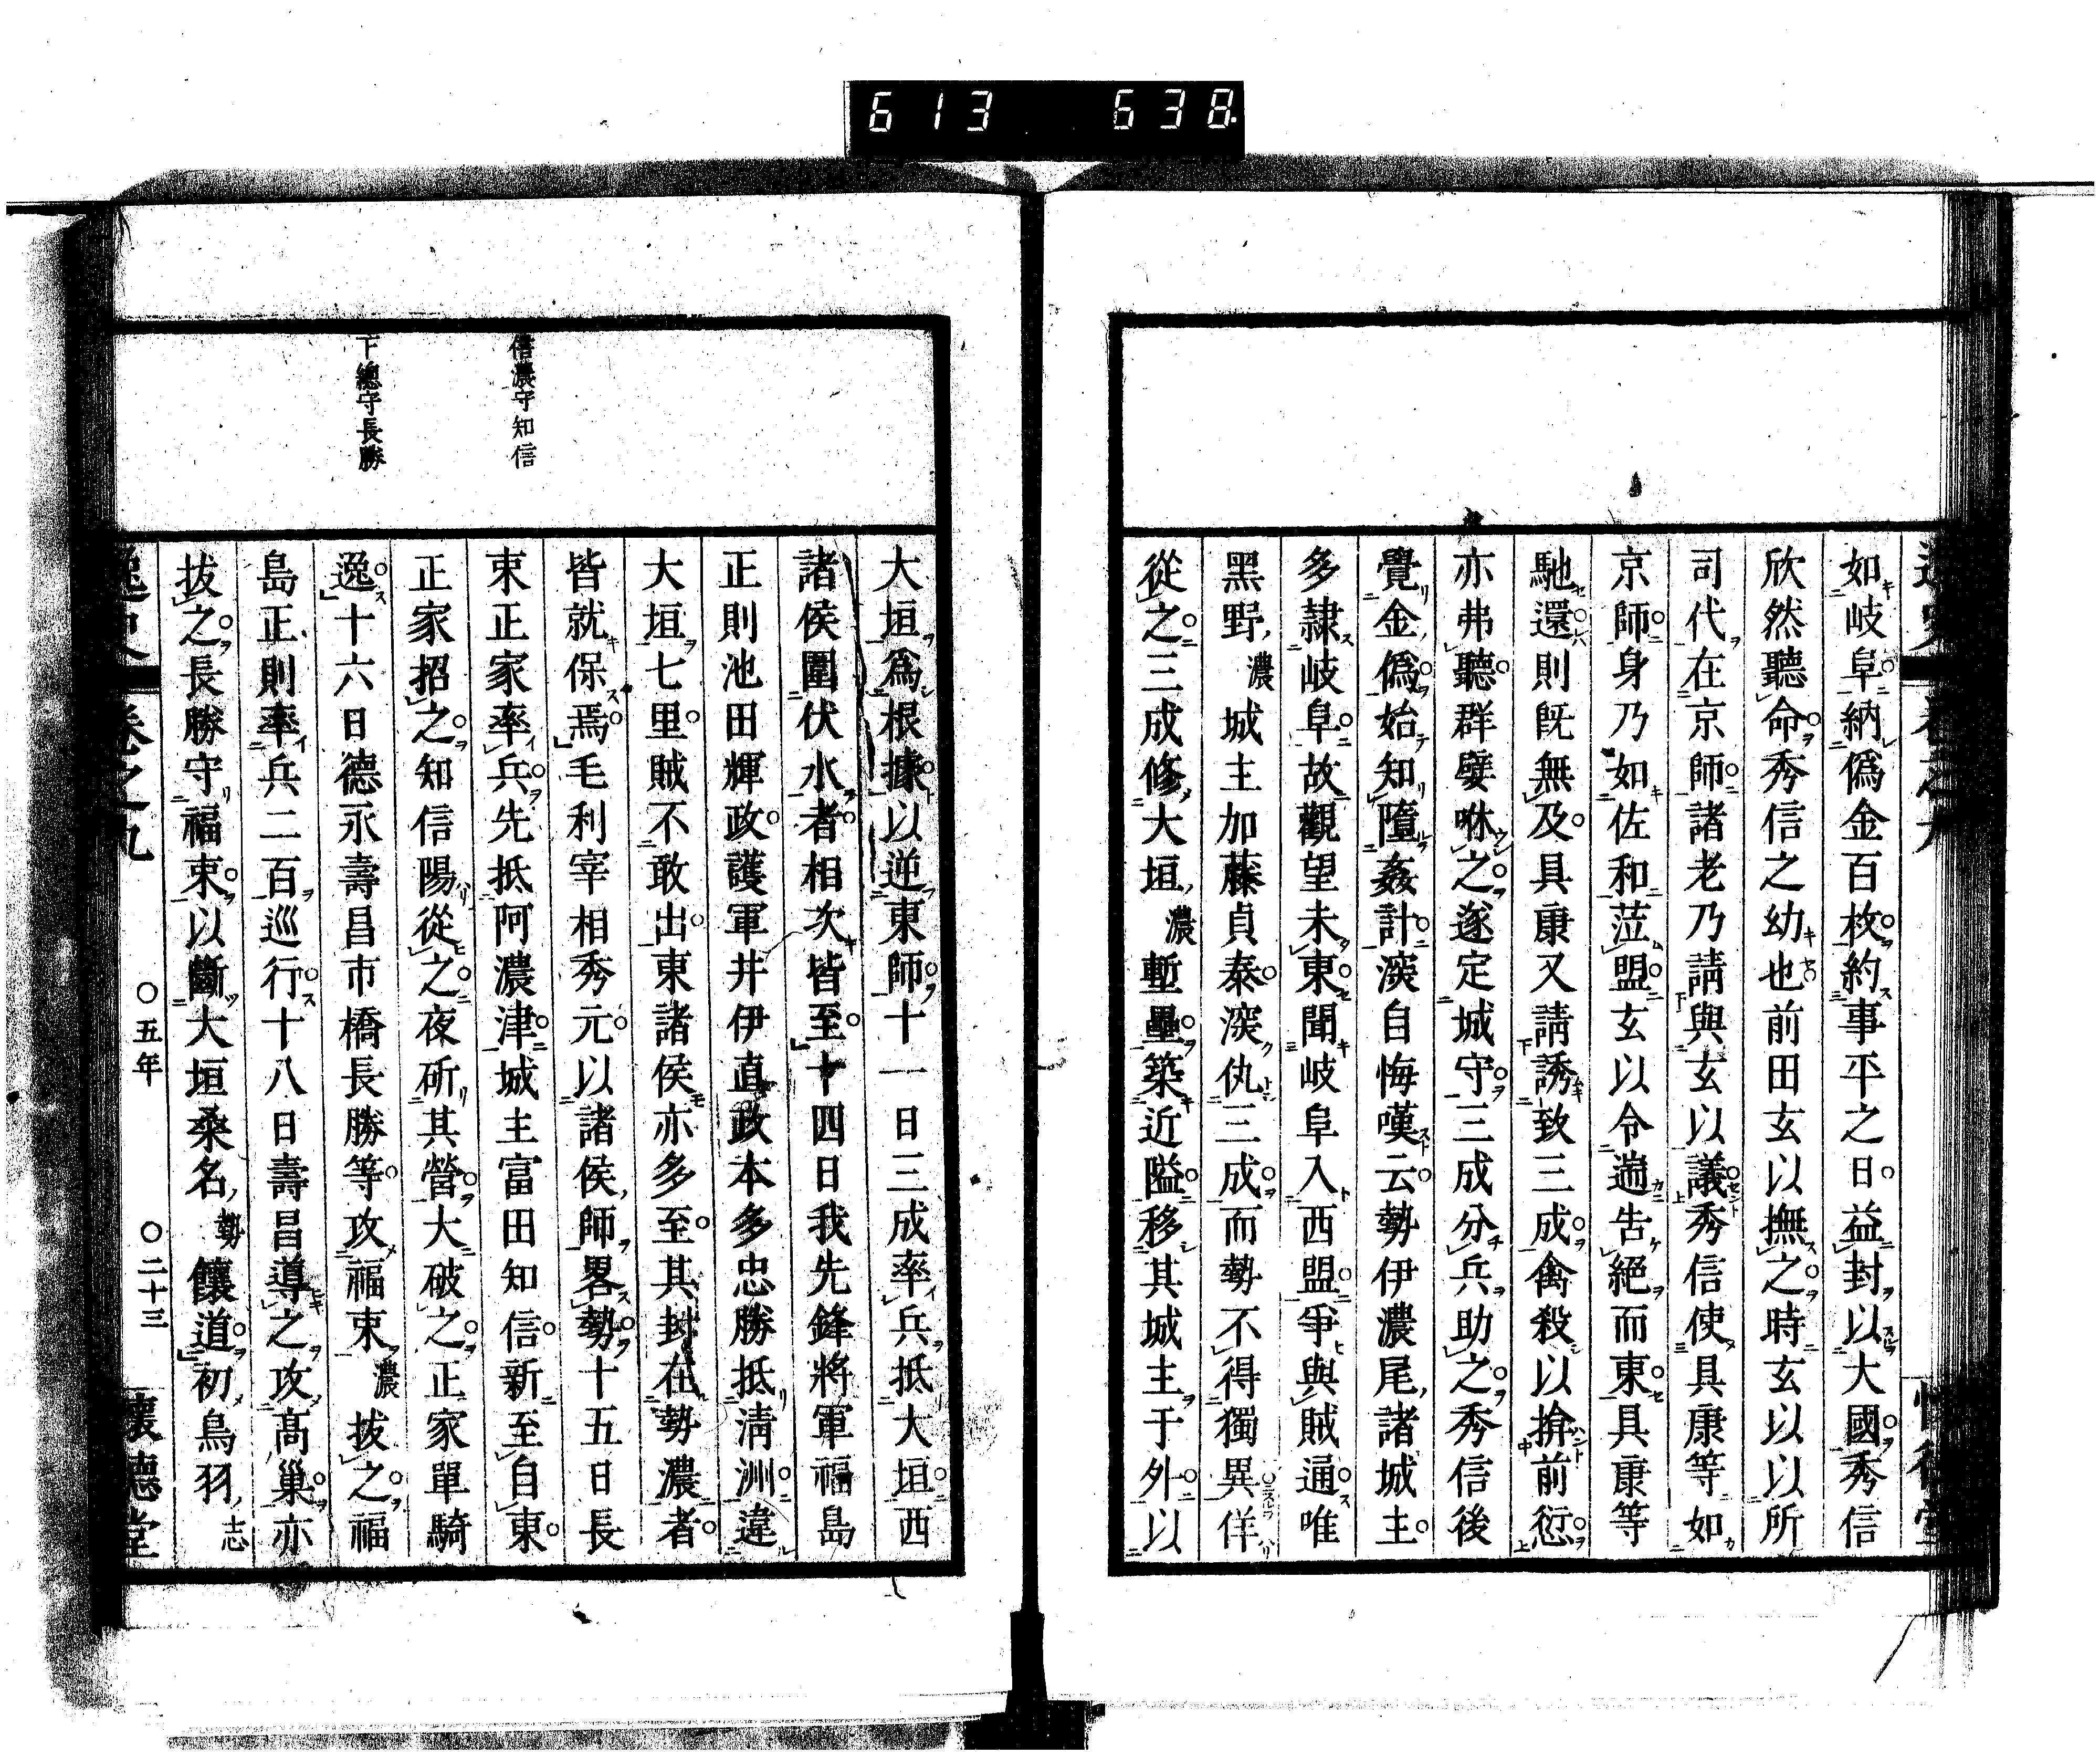 613 638
如岐阜納僞金百枚約事平之日益封以大國秀信
欣然聽命秀信之幼也前田玄以撫之時玄以以所
司代在京師諸老乃請與玄以議秀信使具康等如
京師身乃如佐和莅盟玄以令遄告絕而東具康等
馳還則既無及具康又請誘致三成禽殺以揜前愆
亦弗聽群嬖咻之遂定城守三成分兵助之秀信後
覺金僞始知墮姦計深自悔嘆云勢伊濃尾諸城主
多隷岐阜故觀望未東聞岐阜入西盟爭與賊通唯
黑野濃城主加藤貞泰深仇三成而勢不得獨異佯
從之三成修大垣濃塹壘築近隘移其城主于外以
大垣爲根據以逆東師十一日三成率兵抵大垣西
諸侯圍伏水者相次皆至十四日我先鋒將軍福島
正則池田輝政護軍井伊直政本多忠勝抵淸洲違
大垣七里賊不敢出東諸侯亦多至其封在勢濃者
皆就保焉毛利宰相秀元以諸侯師畧勢十五日長
束正家率兵先抵阿濃津城主富田知信新至自東
正家招之知信陽從之夜斫其營大破之正家單騎
逸十六日德永壽昌市橋長勝等攻福束濃拔之福
島正則率兵二百巡行十八日壽昌導之攻高巢亦
拔之長勝守福束以斷大垣桑名勢饟道初鳥羽志
信濃守知信
下總守長勝
逸史 卷之九 ○五年 ○二十三 懷德堂